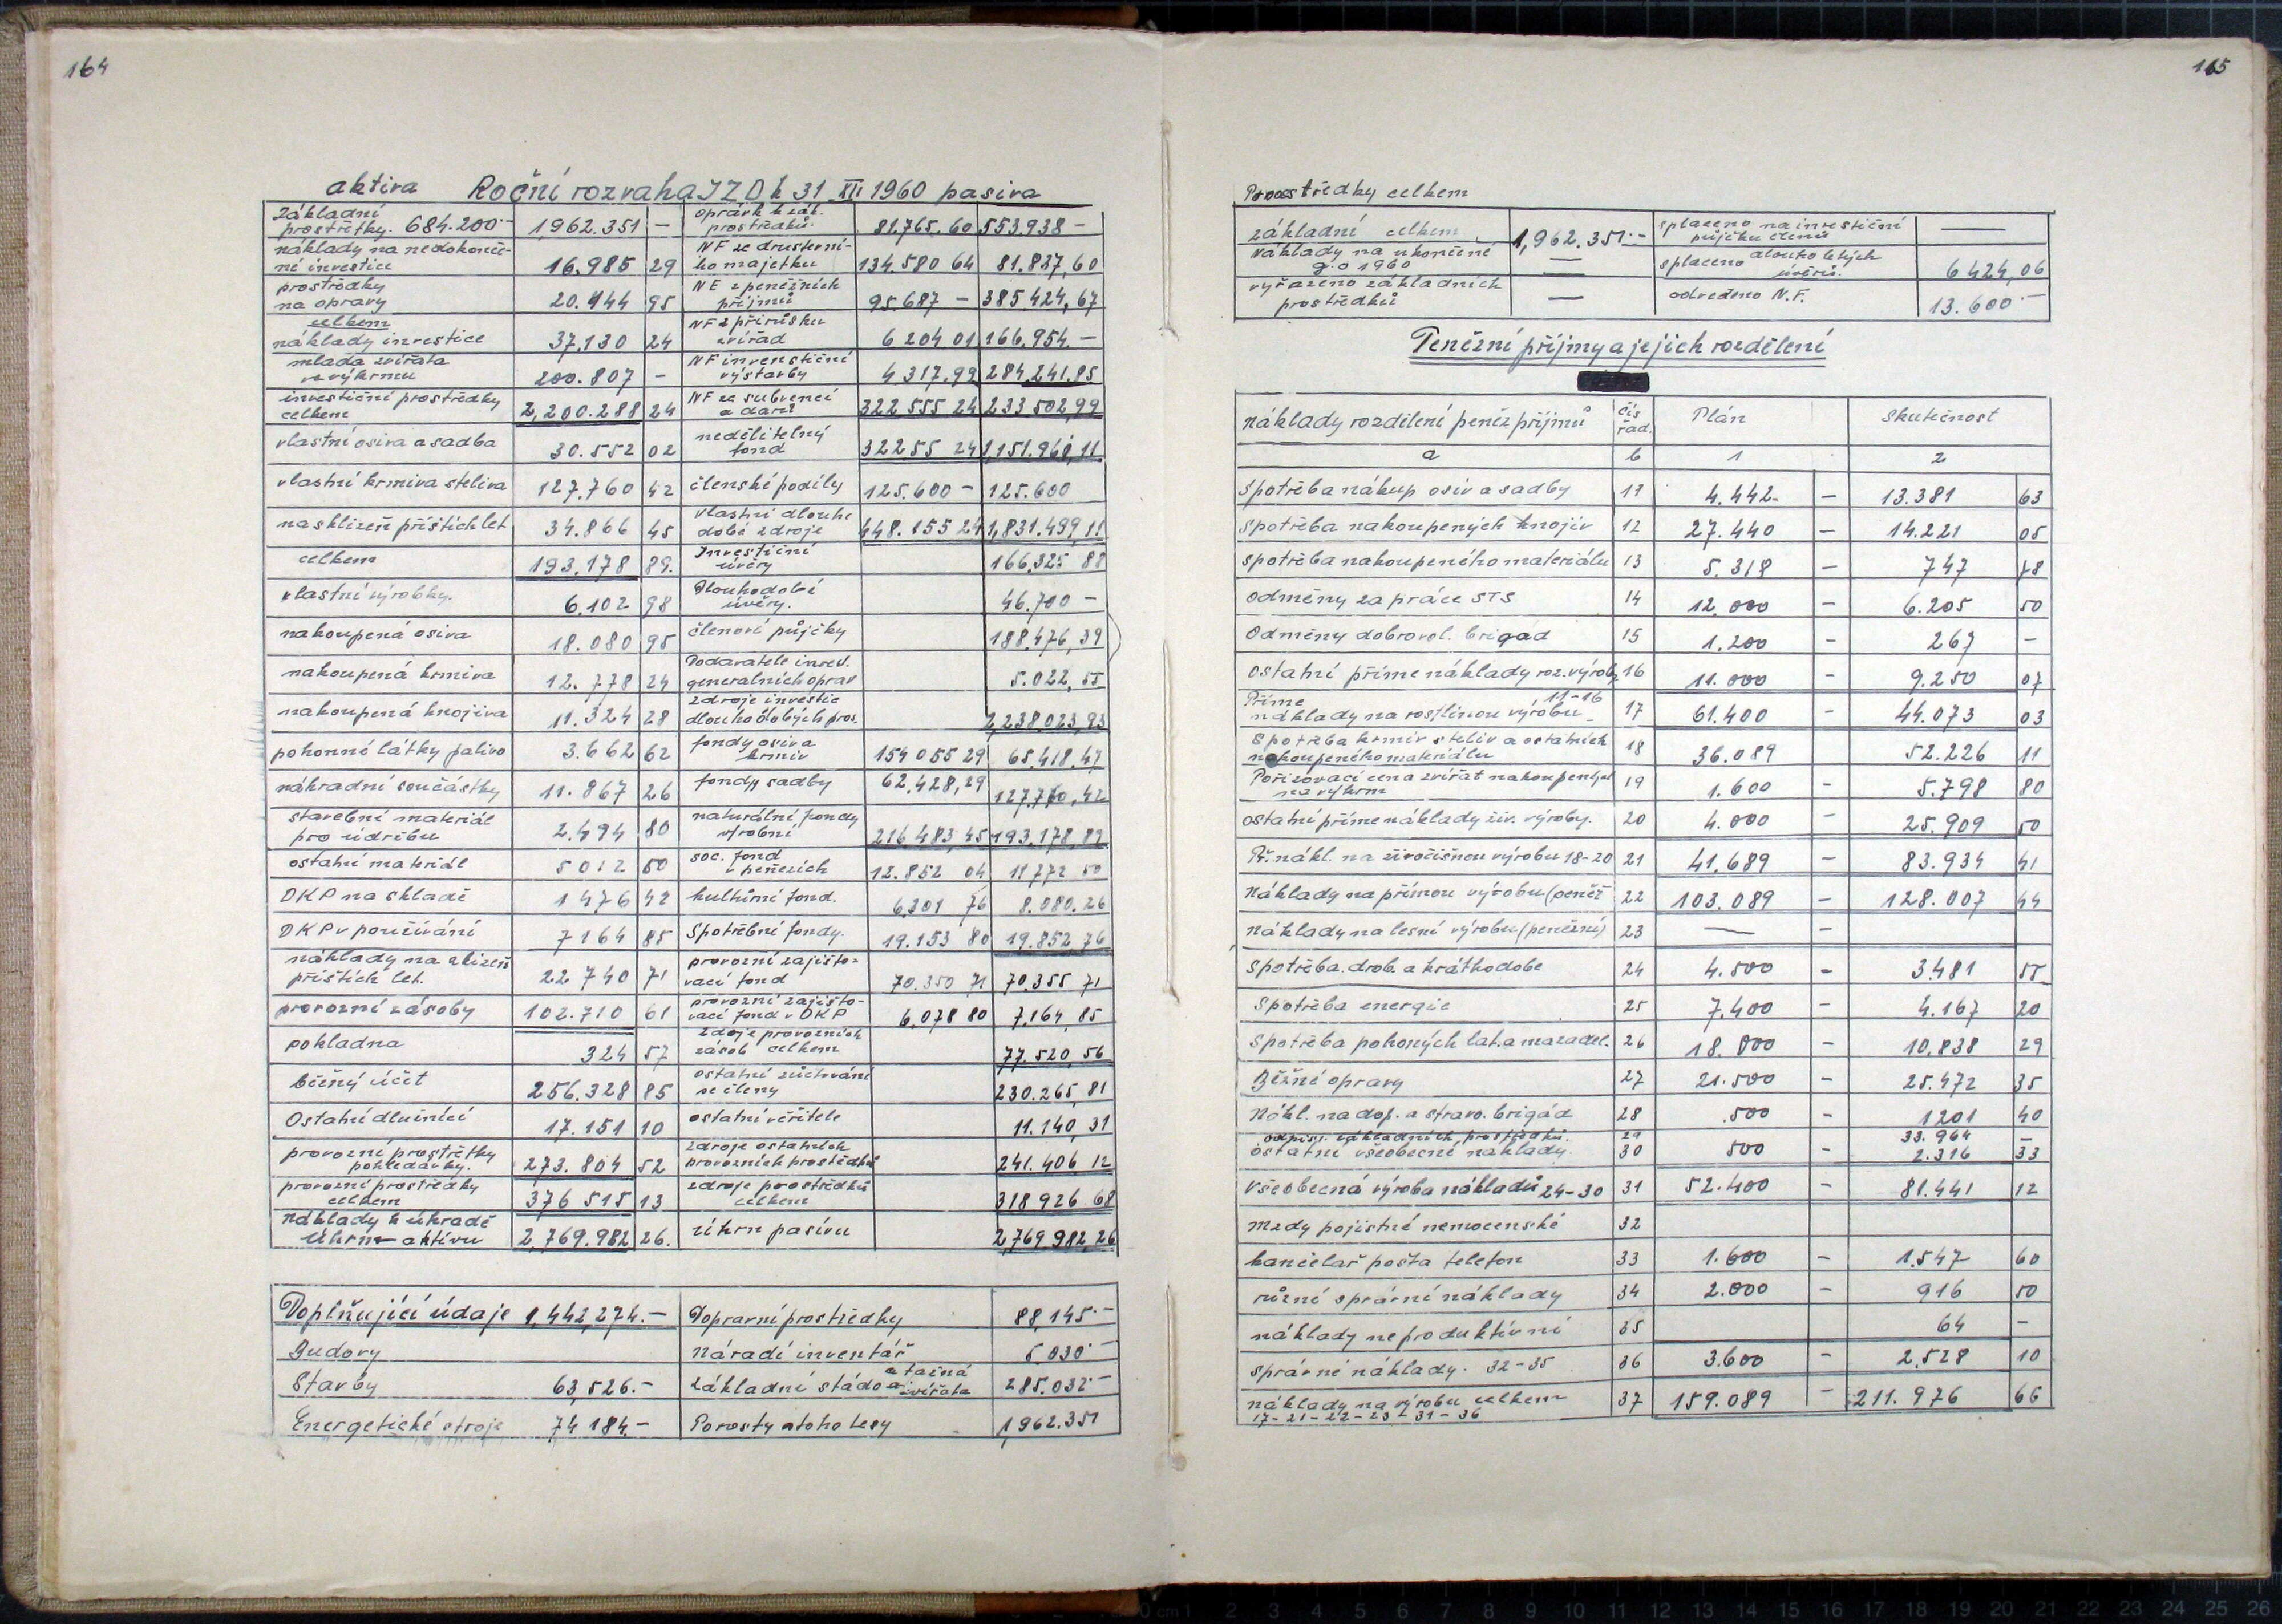 164
aktiva Roční rozvaha JZD k 31 XII 1960 pasiva
základní prostřetky. 684.200·- 1,962.351 — oprávk k zákl. prostředků. 81.765.60 553.938 —
náklady na nedokončené investice 16.985 29 NF ze družstevního majetku 134.580 64 81.837,60
prostředky na opravy 20.144 95 NF z peněžních příjmů 95.687 — 385.424,67
celkem náklady investice 37.130 24 NF z přírůsku zvířad 6 204 01 166.954.—
mlada zvířata ve výkrmu 200.807 — NF invenstiční výstavby 4 317.99 284.241.85
investiční prostředky celkem 2,200.288 24 NF ze subvencí a darů 322 555 24 233 502,99
vlastní osiva a sadba 30.552 02 nedělitelný fond 322.55 24 1,151.961,11
vlastní krmiva steliva 127.760 42 členské podíly 125.600 — 125.600
na sklizeň příštích let 34.866 45 vlastní dlouhodobé zdroje 448.155 24 1,831.499,11
celkem 193.178 89. Investiční úvěry 166.325 88
vlastní výrobky. 6.102 98 Dlouhodobé úvěry. 46.700 —
nakoupená osiva 18.080 95 členové půjčky 188.476,39
nakoupená krmiva 12.778 24 Dodavatele invest. generalních oprav 5.022,55
nakoupená hnojiva 11.324 28 zdroje investic dlouhodobých pros. 2,238.023,93
pohonné látky palivo 3.662 62 fondy osiva krmiv 154 055 29 65.418.47
náhradní součástky 11.867 26 fondy sadby 62.428,29 127.760,42
stavební materiál pro údržbu 2.494 80 naturální fondy výrobní 216 483,45 193.178,89
ostatní materiál 5 012 50 soc. fond v peňezích 12.852 04 11 772 50
DKP na skladě 1 476 42 kulturní fond. 6.301 76 8.080.26
DKP v používání 7 164 85 Spotřební fondy. 19.153 80 19.852,76
náklady na sklizeň příštích let. 22 740 71 provozní zajišťovací fond 70.350 71 70.355 71
provozní zásoby 102.710 61 provozní zajišťovací fond v DKP 6.078 80 7.164,85
pokladna 324 57 zdroje provozních zásob celkem 77.520,56
běžný účet 256.328 85 ostatní zúčtování se členy 230.265,81
Ostatní dlužníci 17.151 10 ostatní věřitele 11.140,31
provozní prostřetky pohledávky. 273.804 52 zdroje ostatních provozních prostědků 241.406 12
provozní prostředky celkem 376 515 13 zdroje prostředků celkem 318 926 68
náklady k úhradě
Úhrn aktivu 2,769.982 26. úhrn pasívu 2,769.982,26
Doplňující údaje 1,442,274.— Dopravní prostředky 88,145·—
Budovy Náradí inventář 5.030·—
Stavby 63,526.— základní stádo a tažná zvířata 285.032·—
Energetické stroje 74 184.— Porosty a toho lesy 1,962.351
165
Prostředky celkem
základní celkem 1,962.351·- splaceno na investiční půjčku členů —
Náklady na ukončené g.o 1960 — splaceno dlouholetých úvěrů. 6 424,06
vyřazeno základních prostředků — odvedeno N.F. 13.600·—
Peněžní příjmy a jejich rozdělení
náklady rozdělení peněz příjmů čís řad. Plán Skutečnost
a b 1 2
Spotřeba nákup osiv a sadby 11 4.442- — 13.381 63
Spotřeba nakoupených hnojiv 12 27.440 — 14.221 05
spotřeba nakoupeného materiálu 13 5.318 — 747 78
odměny za práce STS 14 12.000 — 6.205 50
Odměny dobrovol. brigád 15 1.200 — 267 —
ostatní příme náklady roz. výroby 16 11.000 — 9.250 07
Příme náklady na rostlinou výrobu 11-16 17 61.400 — 44.073 03
Spotřeba krmiv steliv a ostatních nakoupeného materiálu 18 36.089 52.226 11
Pořizovací cena zvířat nakoupených na výkrm 19 1.600 — 5.798 80
ostatní příme náklady živ. výroby. 20 4.000 — 25.909 50
Př. nákl. na živočišnou výrobu 18-20 21 41.689 — 83.934 41
Náklady na přímou výrobu (peněž 22 103.089 — 128.007 44
náklady na lesní výrobu (peněžní) 23 — —
Spotřeba drob. a krátkodobe 24 4.500 — 3.481 55
Spotřeba energie 25 7.400 — 4.167 20
Spotřeba pohoných lat. a mazadel. 26 18.000 — 10.838 29
Běžné opravy 27 21.500 — 25.472 35
Nákl. na dop. a stravo. brigád 28 .500 — 1201 40
odpisy. základních prostředků. 29 33.964 —
ostatní všeobecné náklady 30 500 — 2.316 33
všeobecná výroba nákladů 24-30 31 52.400 — 81.441 12
mzdy pojistné nemocenské 32
kancelař pošta telefon 33 1.600 — 1.547 60
různí správní náklady 34 2.000 — 916 50
náklady neproduktivní 35 64 —
správné náklady. 32-35 36 3.600 — 2.528 10
náklady na výrobu celkem 17-21-22-23-31-36 37 159.089 — 211.976 66